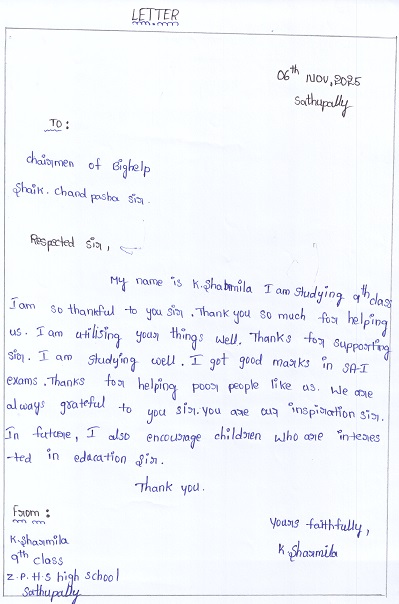 LETTER
06th Nov, 2025
Sathupally
To:
chairmen of Bighelp
Shaik. Chand pasha sir.
Respected sir,
My name is K. Sharmila I am studying 9th class
I am so thankful to you sir. Thank you so much for helping
us. I am utilising your things well. Thanks for supporting
sir. I am studying well. I got good marks in SA-I
exams. Thanks for helping poor people like us. We are
always grateful to you sir. you are our inspiration sir.
In future, I also encourage children who are interes
-ted in education sir.
Thank you.
From:
Yours faithfully,
K. Sharmila
K Sharmila
9th class
Z.P.H.S high school
Sathupally